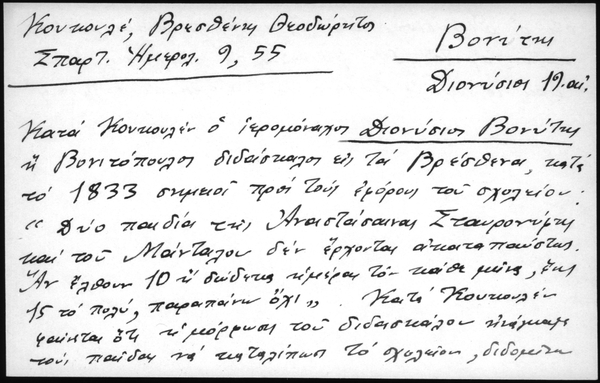 Κουκουλέ, Βρεσθένης Θεοδώρητος
Σπαρτ. Ἡμερολ. 9, 55
Βονίτης
Διονύσιος 19. αἰ.
Κατά Κουκουλέν ὁ ἱερομόναχος Διονύσιος Βονίτης
ἤ Βονιτόπουλος διδάσκαλος εἰς τά Βρέσθενα, κατά
τό 1833 σημειοῖ πρός τούς ἐφόρους τοῦ σχολείου:
" Δύο παιδία τῆς Ἀναστάσαινας Σταυρον
καί τοῦ Μάνταλου δέν ἔρχονται ἀκαταπαύστως.
Ἄν ἔλθουν 10 ἤ δώδεκα ἡμέρας τόν κάθε μῆνα, ἕως
15 τό πολύ, παραπάνω ὄχι ". Κατά Κουκουλέν
φαίνεται ὅτι ἡ μόρφωσις τοῦ διδασκάλου ἠνάγκασε
τούς παῖδας νά καταλίπωσι τό σχολεῖον, διδομένου